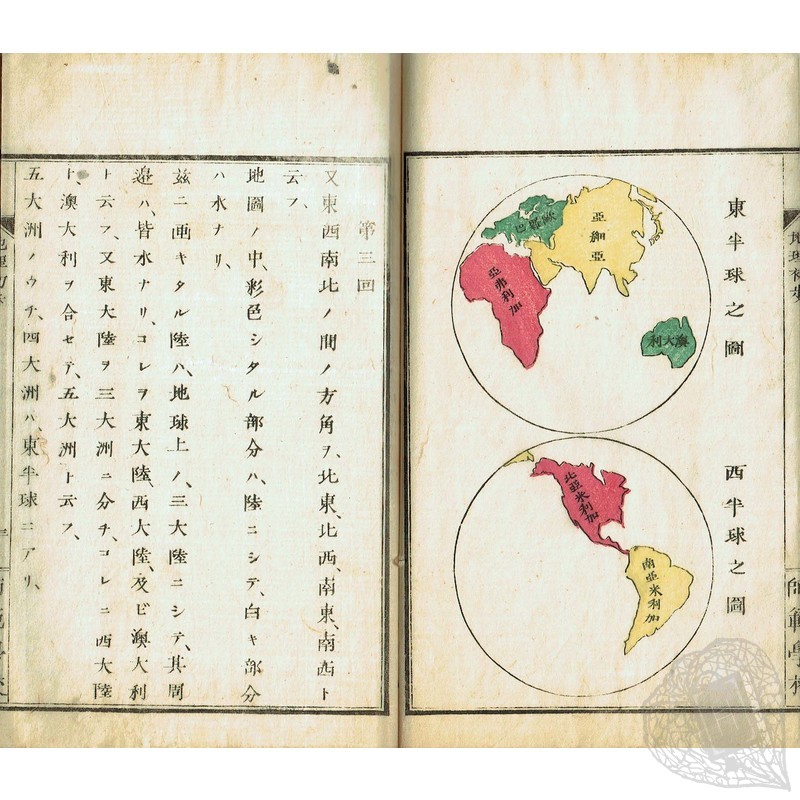 東半球之圖
歐羅巴
亞細亞
亞弗利加
澳大利
西半球之圖
北亞米利加
南亞米利加
師範學校
又東西南北ノ間ノ方角ヲ、北東、北西、南東、南西ト
云フ、
第三回
地圖ノ中、彩色シタル部分ハ、陸ニシテ、白キ部分
ハ水ナリ、
茲ニ畫キタル陸ハ、地球上ノ、三大陸ニシテ、其周
邉ハ、皆水ナリ、コレヲ東大陸、西大陸、及ビ澳大利
ト云フ、又東大陸ヲ三大洲ニ分チ、コレニ西大陸
ト、澳大利ヲ合セテ、五大洲ト云フ、
五大洲ノウチ、四大洲ハ、東半球ニアリ、